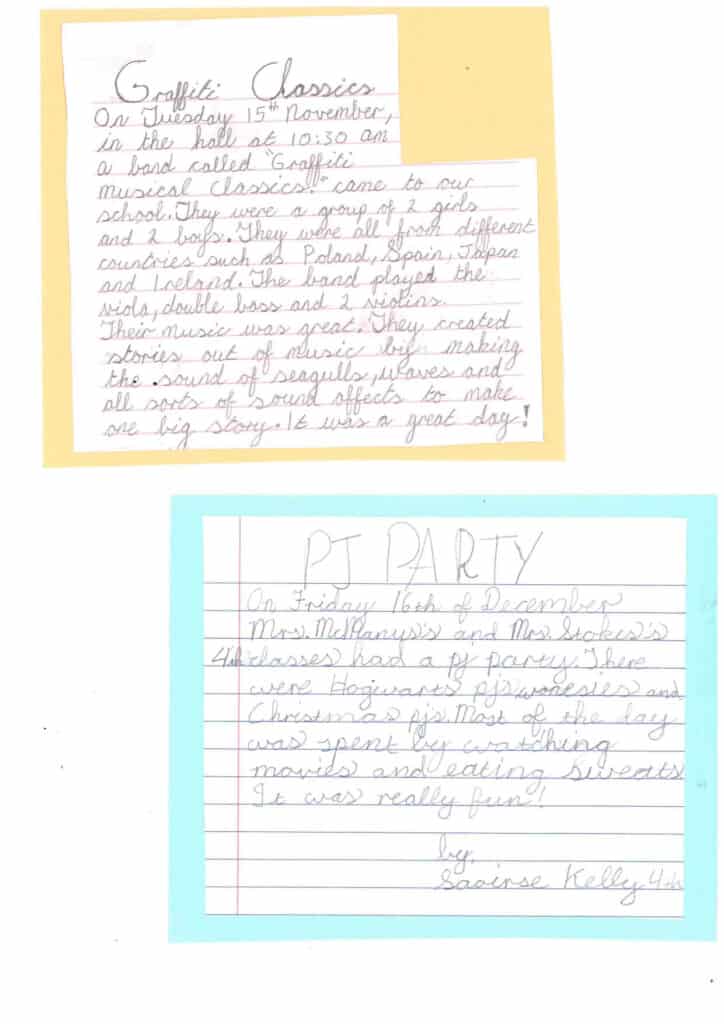 Graffiti Classics
On Tuesday 15th November,
in the hall at 10:30 am
a band called "Graffiti
musical Classics." came to our
school. They were a group of 2 girls
and 2 boys. They were all from different
countries such as Poland, Spain, Japan
and Ireland. The band played the
viola, double bass and 2 violins.
Their music was great. They created
stories out of music by making
the sound of seagulls, waves and
all sorts of sound affects to make
one big story. It was a great day!
PJ PARTY
On Friday 16th of December
Mrs. McManys's and Mrs. Stokes's
4th classes had a pj party. There
were Hogwarts pjs, wonesies and
Christmas pjs. Most of the day
was spent by watching
movies and eating sweats
It was really fun!
by,
Saoirse Kelly 4th